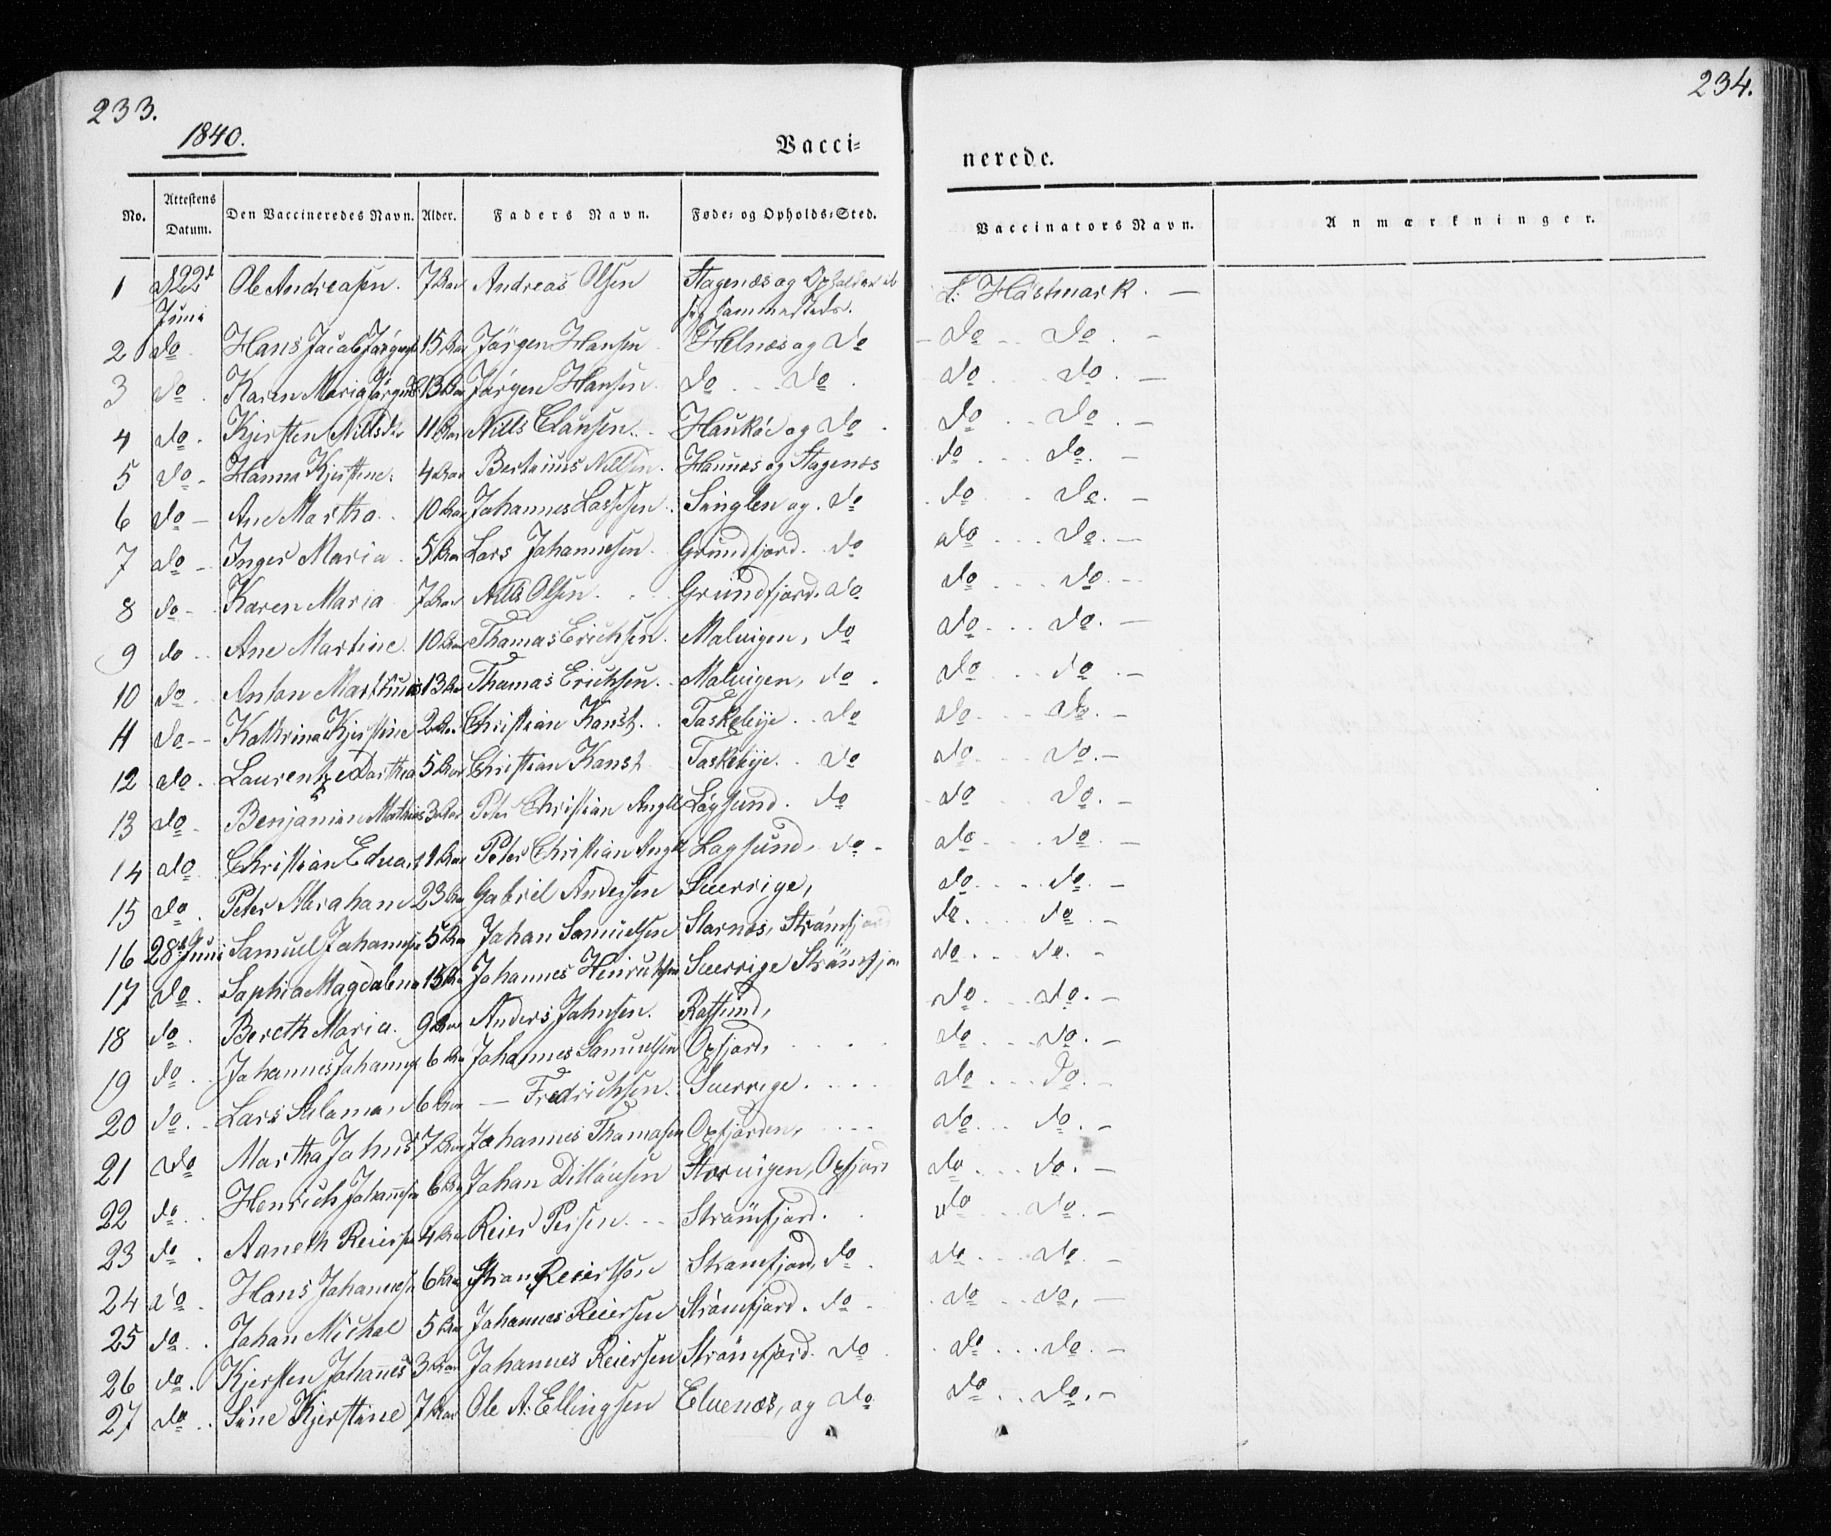 233.
234.
1840.
Vacci-
nerede.
No. Attestens Datum. Den Vaccineredes Navn. Alder. Faders Navn. Føde- og Opholds-Sted. Vaccinators Navn. Anmærkninger.
1 d 22d Juni Ole Andreasen. 7 Aar Andreas Olsen Stagenæs og Opholder sig sammesteds. L: Hästmark. —
2 do Hans Jacob Jørgens 15 Aar Jørgen Hansen Helnæs og do do do. —
3 do. Karen Maria Jørgensd 13 Aar Jørgen Hansen do do. do do. —
4 do. Kjersten Nillsdr 11 Aar Nills Clausen. Haukøe og do do do. —
5 do - Hanna Kjerstine. 4 Aar Bertinius Nillsen. Hannæs og Stagenæs do do. —
6 do — Ane Martha 10 Aar Johannes Lassesen. Singlen og do do do. —
7 do - Inger Maria 5 Aar Lars Johannesen. Grundfjord. do do do. —
8 do - Karen Maria 7 Aar Nills Olsen. Grundfjord. do do do. —
9 do Ane Martine 10 Aar Thomas Erichsen. Malvigen, do do do. —
10 do. Anton Marthinus 13 Aar Thomas Erichsen. Malvigen, do. do do. —
11 do - Kathrina Kjerstine 2 Aar Christian Kanst. Taskebye. do do do. —
12 do. Laurentze Darthea 5 Aar Christian Kanst Taskebye. do do do. —
13 do. Benjamin Mathias 3 Aar Peter Christian Angell Løgsund. do do do. —
14 do Christian Eduar 1 Aar Peter Christian Angell Lagsund, do do do. —
15 do. Peter Abraham 23 Aar Gabriel Andersen Sverrige, do do. —
16 28de Juni Samuel Johannes 5 Aar Johan Samuelsen Starnæs, Strømfjord do. do. —
17 do. Saphia Magdalena 15 Aar Johannes Heinrichsen Sverrige Strømfjor do. do. -
18 do. Bereth Maria. 9 Aar Anders Johnsen. Rotsund, do do. —
19 do. Johannes Johannes 6 Aar Johannes Samuelsen Oxfjord, do do. —
20 do. Lars Salaman 6 Aar — Fredrichsen. Sverrige. do do. —
21 do Martha Johns 7 Aar Johannes Thomasen Oxfjorden, do do. —
22 do. Henrich Johannesen 6 Aar Johan Ditlausen Storvigen, Oxfjord do do. —
23 do. Aaneth Reiers 4 Aar Reier Persen. Strømfjord. do do. —
24 do. Hans Johannes 6 Aar Reiertsøn Strømfjord, do. do do. —
25 do. Johan Michal 5 Aar Johannes Reiersen Strømfjord. do do do, —
26 do. Kjersten Johannes 3 Aar Johannes Reiersen Strømfjord. do do do. —
27 do. Sine Kjerstine 7 Aar Ole A: Ellingsen Elvenæs, og do do do. —